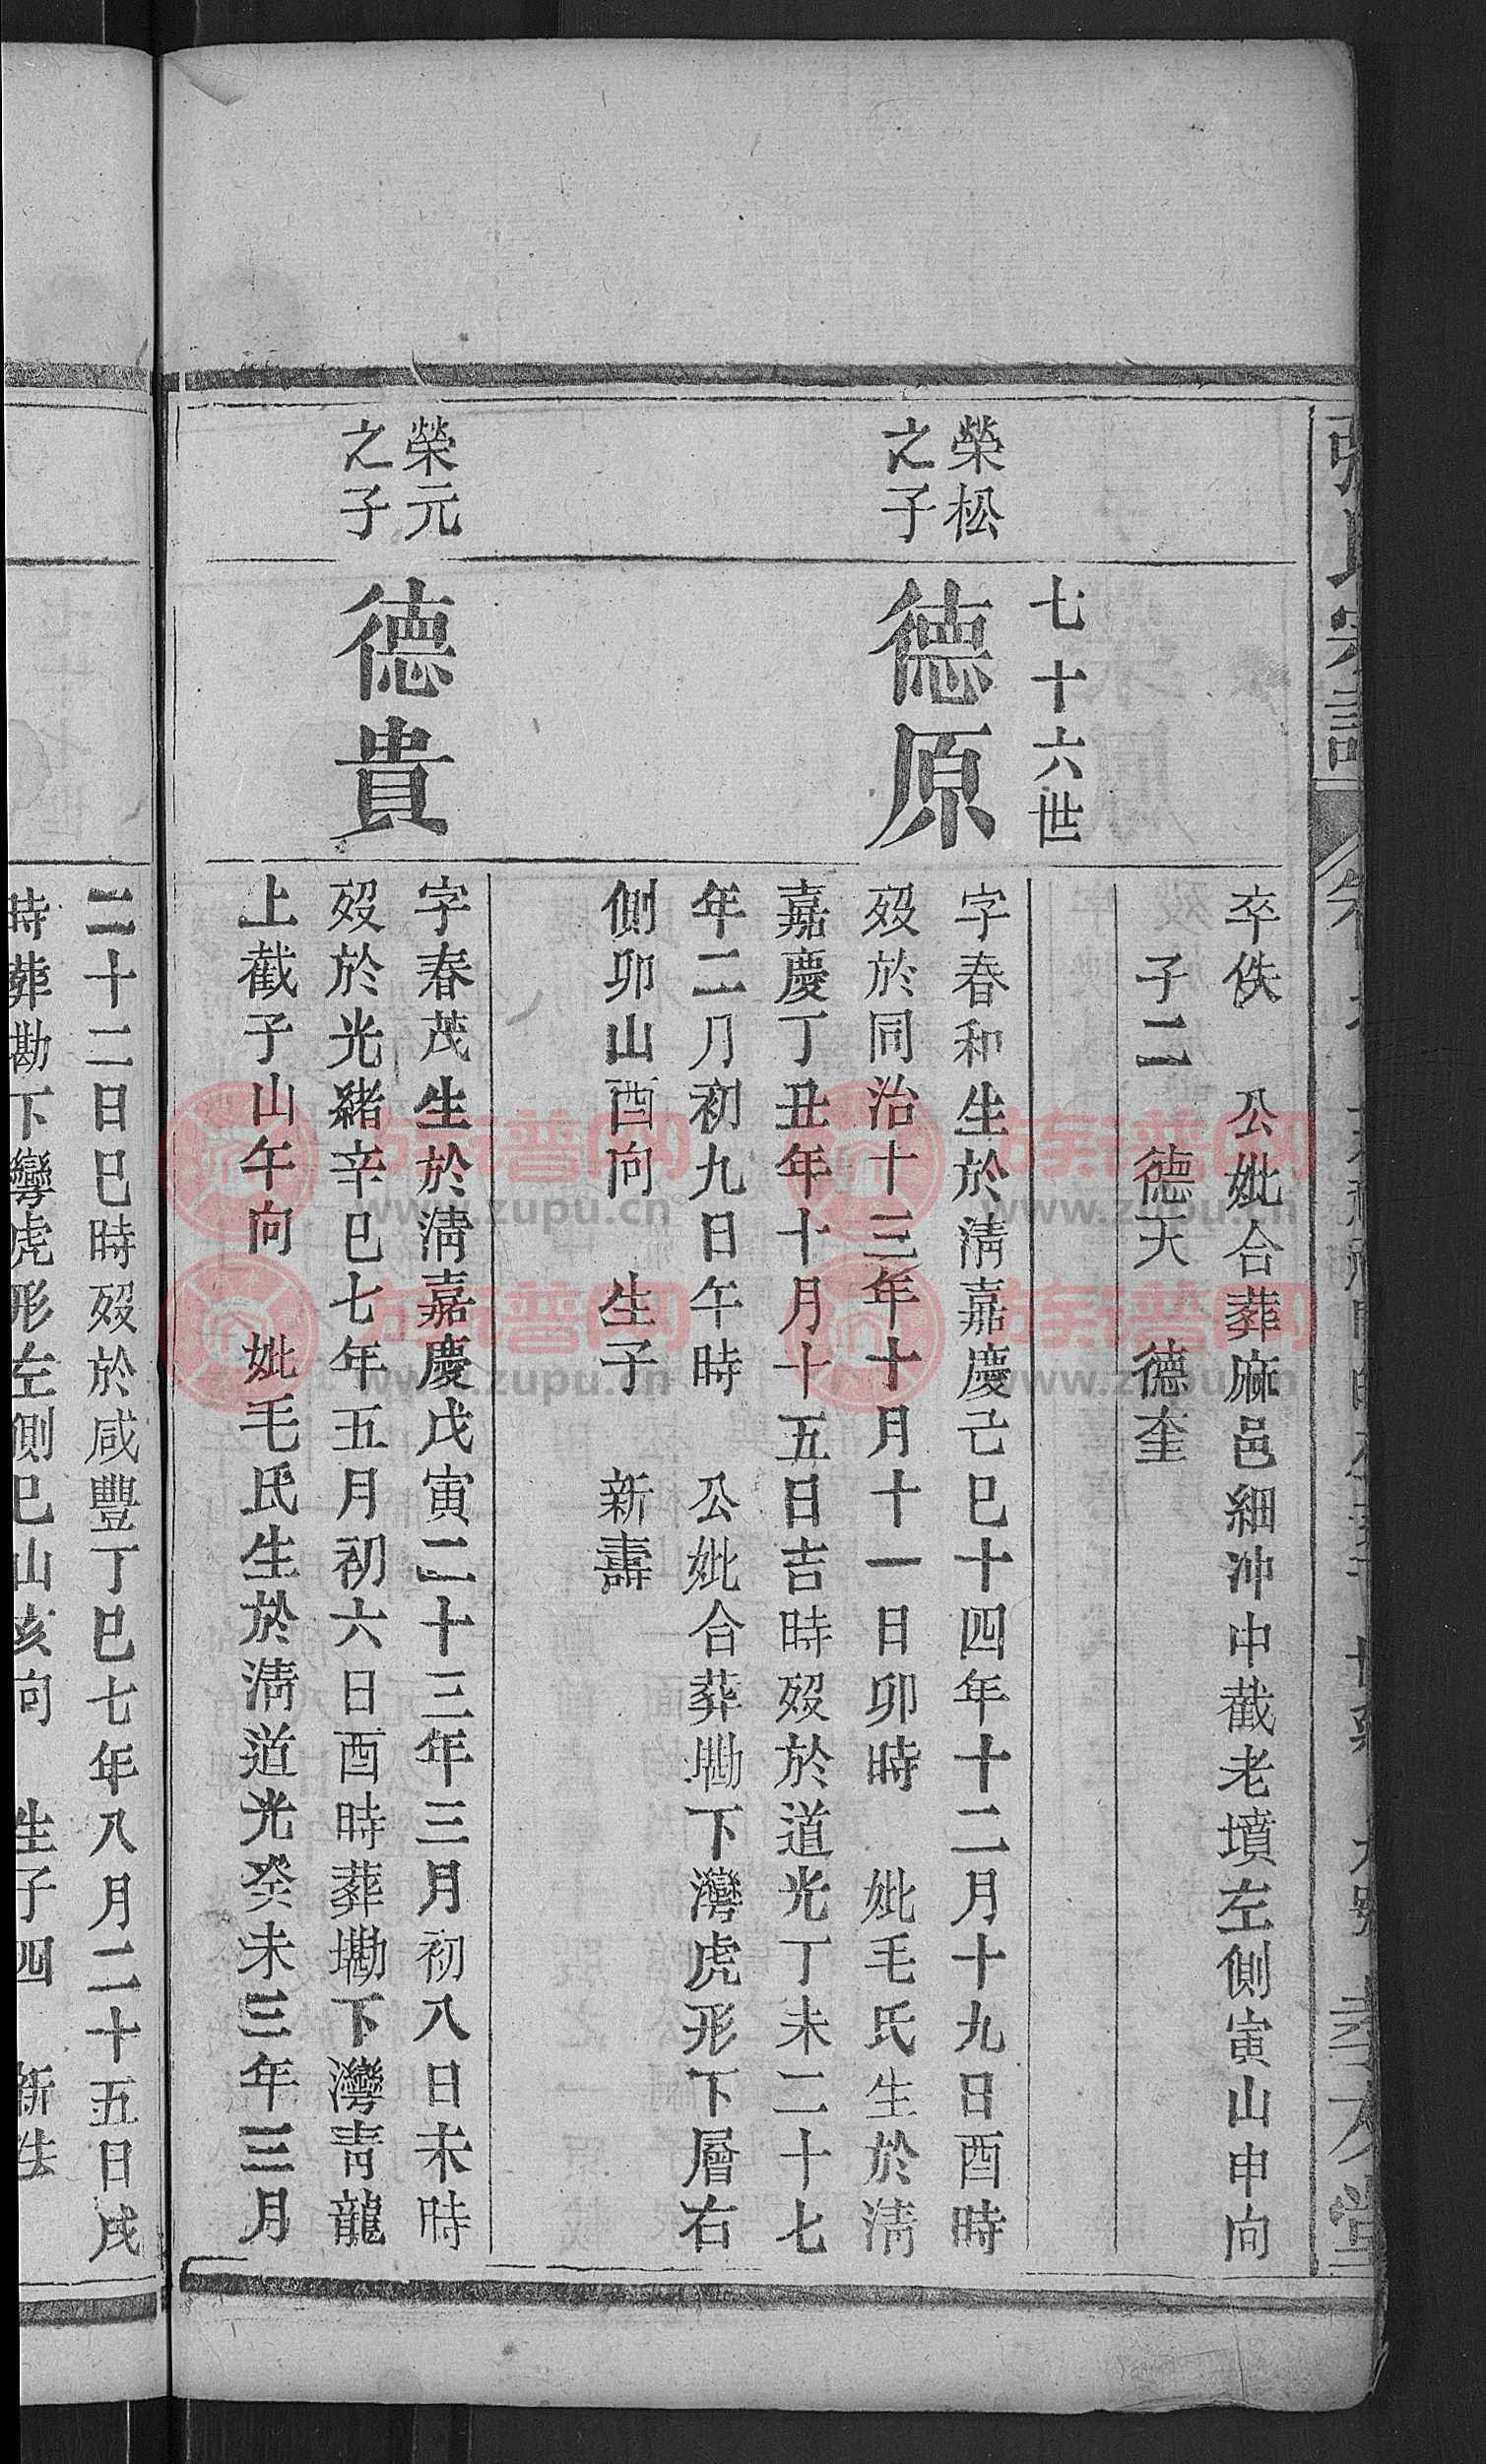 卒佚　公妣合葬麻邑細冲中截老墳左側寅山申向
子二　德天　德奎
七十六世
榮松
之子
德原
字春和生於淸嘉慶己巳十四年十二月十九日酉時
歿於同治十三年十月十一日卯時　妣毛氏生於淸
嘉慶丁丑年十月十五日吉時歿於道光丁未二十七
年二月初九日午時　公妣合葬塝下灣虎形下層右
側卯山酉向　生子　新壽
榮元
之子
德貴
字春茂生於淸嘉慶戊寅二十三年三月初八日未時
歿於光緒辛巳七年五月初六日酉時葬墈下灣靑龍
上截子山午向　妣毛氏生於淸道光癸未三年三月
二十二日巳時歿於咸豐丁巳七年八月二十五日戌
時葬墈下灣虎形左側巳山亥向　生子四
族谱网
www.zupu.cn
族谱网
www.zupu.cn
族谱网
www.zupu.cn
族谱网
www.zupu.cn